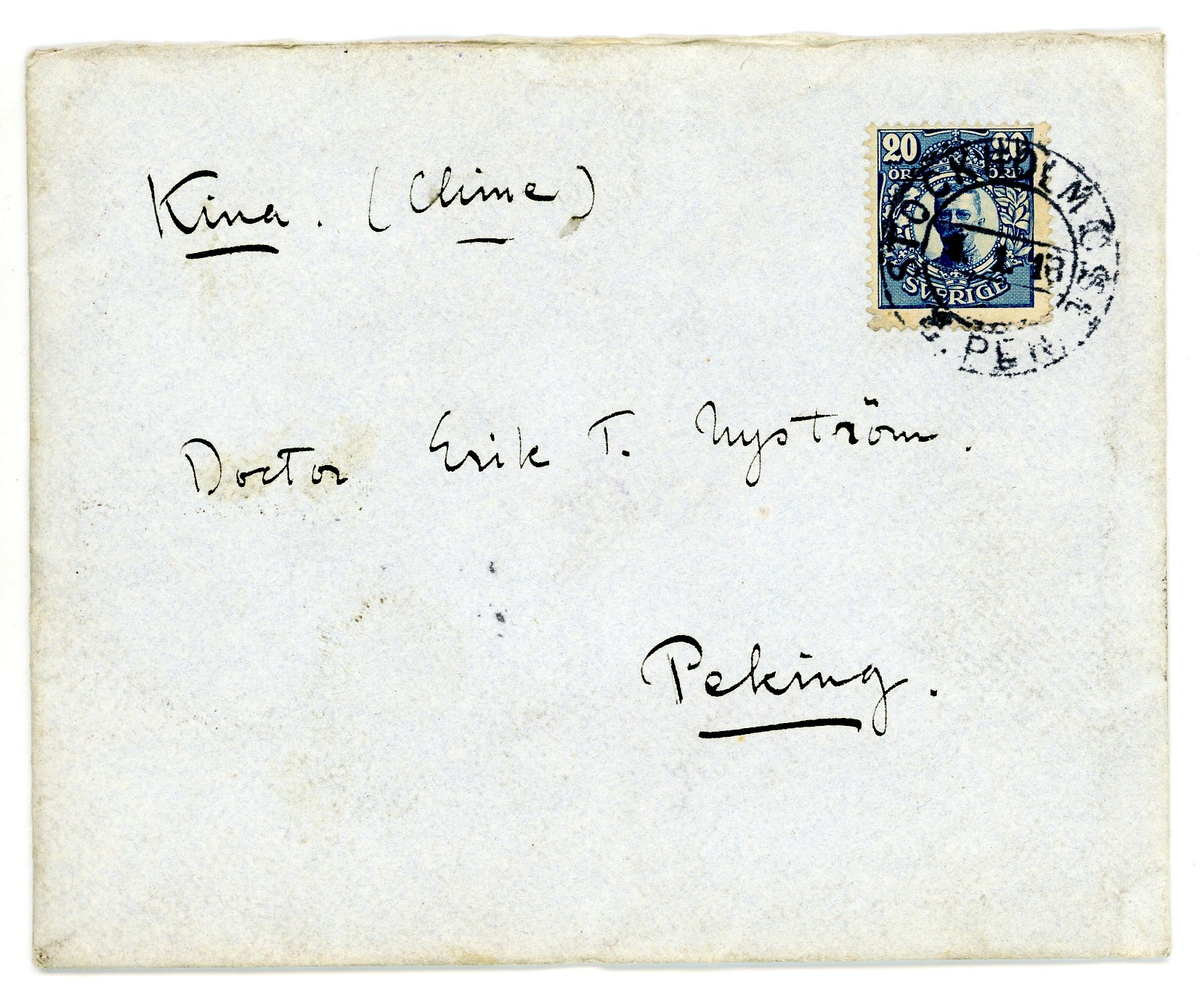 Kina. (Chine)
20 20
ÖRE ÖRE
SVERIGE
STOCKHOLM
18
Doctor Erik T. Nyström.
Peking.